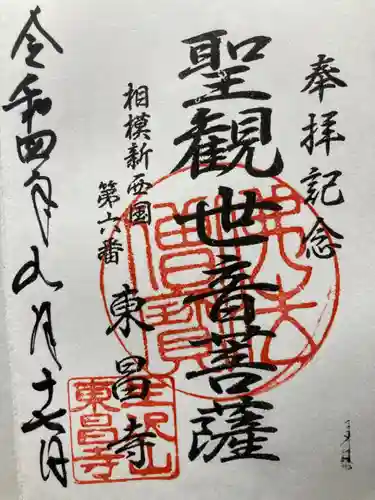 奉拝記念
聖観世音菩薩
相模新西国
第六番
東昌寺
令和四年九月十七日
佛法僧寳
東昌寺